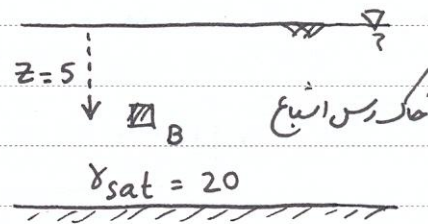 ?
Z = 5
B
خاک رس اشباع
γsat = 20